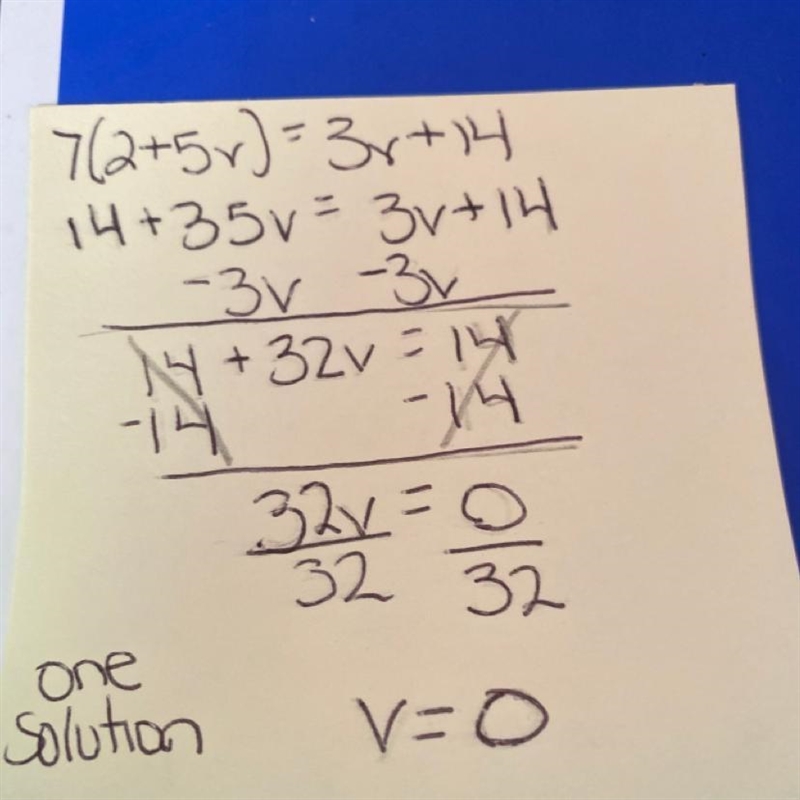 7(2+5v)=3v+14
14+35v=3v+14
-3v -3v
14+32v=14
-14 -14
32v=0
32 32
one
solution
v=0